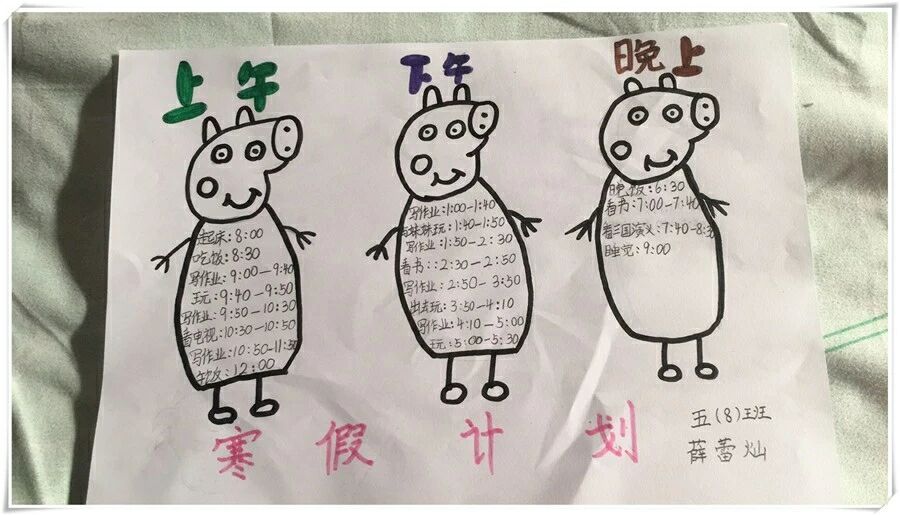 上午
起床:8:00
吃饭:8:30
写作业:9:00—9:40
玩:9:40—9:50
写作业:9:50—10:30
看电视:10:30—10:50
写作业:10:50—11:50
午饭:12:00
下午
写作业:1:00—1:40
与妹妹玩:1:40—1:50
写作业:1:50—2:30
看书::2:30—2:50
写作业:2:50—3:50
出去玩:3:50—4:10
写作业:4:10—5:00
玩:5:00—5:30
晚上
晚饭:6:30
看书:7:00—7:40
看三国演义:7:40—8:30
睡觉:9:00
寒假计划
五(8)班
薛蕾灿